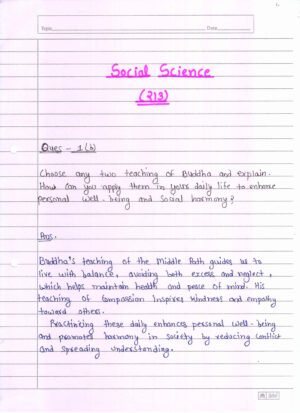 Topic
Date
Social Science
(213)
Ques - 1 (b)
Choose any two teaching of Buddha and explain.
How can you apply them in your daily life to enhance
personal well-being and social harmony?
Ans.
Buddha's teaching of the Middle Path guides us to
live with balance, avoiding both excess and neglect,
which helps maintain health and peace of mind. His
teaching of compassion inspires kindness and empathy
toward others.
Practicing these daily enhances personal well-being
and promotes harmony in society by reducing conflict
and spreading understanding.